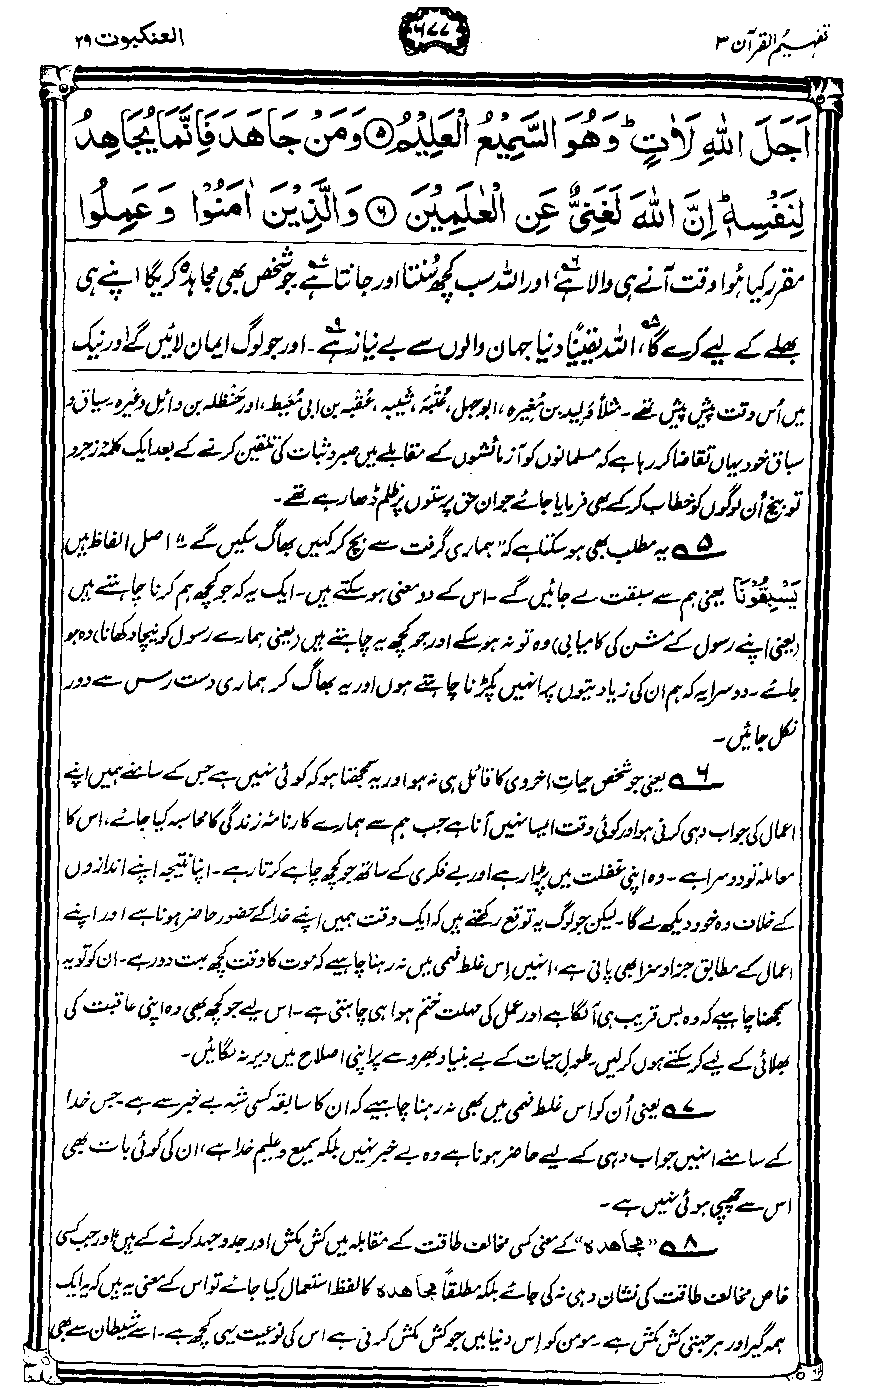 تفہیم القرآن ۳
۶۷۷
العنکبوت ۲۹
اَجَلَ اللّٰهِ لَاٰتٍ ؕ وَهُوَ السَّمِيْعُ الْعَلِيْمُ ۝۵ وَمَنْ جَاهَدَ فَاِنَّمَا يُجَاهِدُ
لِنَفْسِهٖ ؕ اِنَّ اللّٰهَ لَغَنِيٌّ عَنِ الْعٰلَمِيْنَ ۝۶ وَالَّذِيْنَ اٰمَنُوْا وَعَمِلُوا
مقرر کیا ہُوا وقت آنے ہی والا ہے۶، اور اللہ سب کچھ سُنتا اور جانتا ہے۷۔ جو شخص بھی مجاہدہ کریگا اپنے ہی
بھلے کے لیے کرے گا۸، اللہ یقیناً دنیا جہان والوں سے بے نیاز ہے۹۔ اور جو لوگ ایمان لائیں گے اور نیک
میں اُس وقت پیش پیش تھے۔ مثلاً وَلید بن مُغیرہ، ابوجہل، عُتْبَہ، شَیبہ، عُقْبہ بن ابی مُعَیط، اور حَنظَلہ بن وائل وغیرہ۔ سیاق و
سباق خود یہاں تقاضا کر رہا ہے کہ مسلمانوں کو آزمائشوں کے مقابلے میں صبر و ثبات کی تلقین کرنے کے بعد ایک کلمۂ زجر و
توبیخ اُن لوگوں کو خطاب کر کے بھی فرمایا جائے جو ان حق پرستوں پر ظلم ڈھا رہے تھے۔
۵ یہ مطلب بھی ہو سکتا ہے کہ ”ہماری گرفت سے بچ کر کہیں بھاگ سکیں گے“۔ اصل الفاظ ہیں
یَسْبِقُوْنَا یعنی ہم سے سبقت لے جائیں گے۔ اس کے دو معنی ہو سکتے ہیں۔ ایک یہ کہ جو کچھ ہم کرنا چاہتے ہیں
(یعنی اپنے رسول کے مشن کی کامیابی) وہ تو نہ ہو سکے اور جو کچھ یہ چاہتے ہیں (یعنی ہمارے رسول کو نیچا دکھانا) وہ ہو
جائے۔ دوسرا یہ کہ ہم ان کی زیادتیوں پر انہیں پکڑنا چاہتے ہوں اور یہ بھاگ کر ہماری دست رس سے دور
نکل جائیں۔
۶ یعنی جو شخص حیاتِ اخروی کا قائل ہی نہ ہو اور یہ سمجھتا ہو کہ کوئی نہیں ہے جس کے سامنے ہمیں اپنے
اعمال کی جواب دہی کرنی ہو اور کوئی وقت ایسا نہیں آنا ہے جب ہم سے ہمارے کارنامۂ زندگی کا محاسبہ کیا جائے، اس کا
معاملہ تو دوسرا ہے۔ وہ اپنی غفلت میں پڑا رہے اور بے فکری کے ساتھ جو کچھ چاہے کرتا رہے۔ اپنا نتیجہ اپنے اندازوں
کے خلاف وہ خود دیکھ لے گا۔ لیکن جو لوگ یہ توقع رکھتے ہیں کہ ایک وقت ہمیں اپنے خدا کے حضور حاضر ہونا ہے اور اپنے
اعمال کے مطابق جزا و سزا بھی پانی ہے، انہیں اِس غلط فہمی میں نہ رہنا چاہیے کہ موت کا وقت کچھ بہت دور ہے۔ ان کو تو یہ
سمجھنا چاہیے کہ وہ بس قریب ہی آ لگا ہے اور عمل کی مہلت ختم ہوا ہی چاہتی ہے۔ اس لیے جو کچھ بھی وہ اپنی عاقبت کی
بھلائی کے لیے کر سکتے ہوں کر لیں۔ طولِ حیات کے بے بنیاد بھروسے پر اپنی اصلاح میں دیر نہ لگائیں۔
۷ یعنی اُن کو اس غلط فہمی میں بھی نہ رہنا چاہیے کہ ان کا سابقہ کسی شہِ بے خبر سے ہے۔ جس خدا
کے سامنے انہیں جواب دہی کے لیے حاضر ہونا ہے وہ بے خبر نہیں بلکہ سمیع و علیم خدا ہے، ان کی کوئی بات بھی
اس سے چھپی ہوئی نہیں ہے۔
۸ ”مجاھدہ“ کے معنی کسی مخالف طاقت کے مقابلہ میں کش مکش اور جدوجہد کرنے کے ہیں، اور جب کسی
خاص مخالف طاقت کی نشان دہی نہ کی جائے بلکہ مطلقاً مجاھدہ کا لفظ استعمال کیا جائے تو اس کے معنی یہ ہیں کہ یہ ایک
ہمہ گیر اور ہر جہتی کش مکش ہے۔ مومن کو اِس دنیا میں جو کش مکش کرنی ہے اس کی نوعیت یہی کچھ ہے۔ اسے شیطان سے بھی